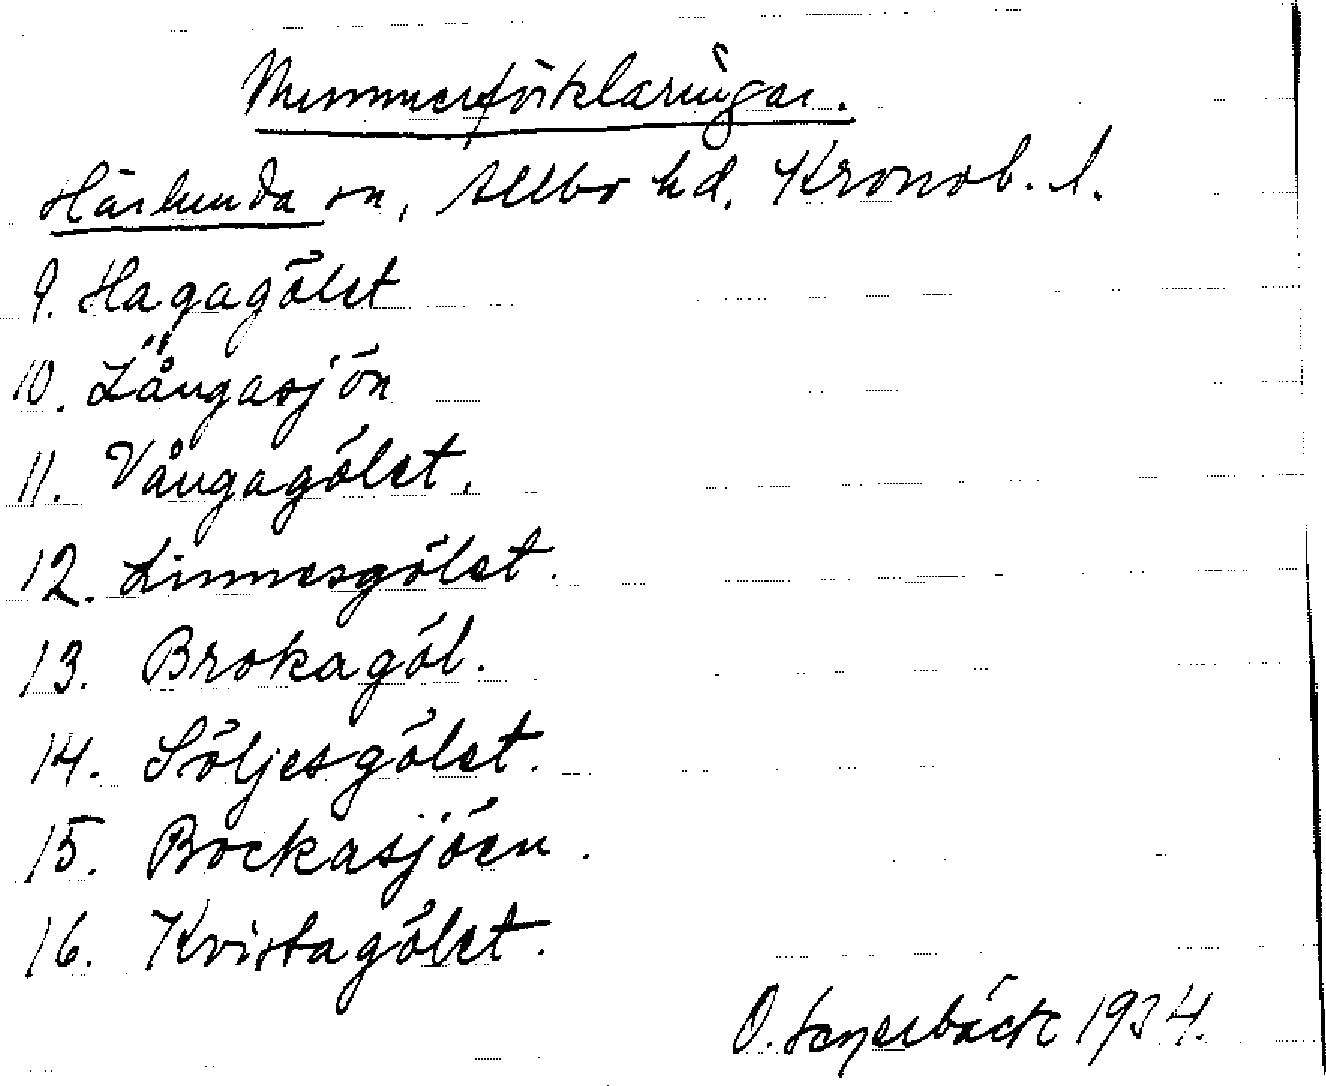 Nummerförklaringar.
Härlunda sn, Allbo hd. Kronob. l.
9. Hagagölet
10. Långasjön
11. Vångagölet.
12. Linnesgölet.
13. Brokagöl.
14. Söljesgölet.
15. Bockasjöen.
16. Kvistagölet.
O. 1934.